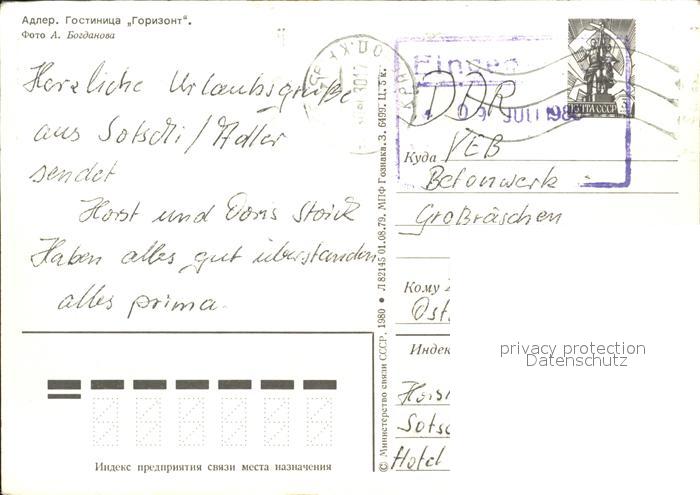 Адлер. Гостиница „Горизонт".
Фото А. Богданова
Herzliche Urlaubsgrüße
aus Sotschi / Adler
sendet
Horst und Doris
Haben alles gut überstanden
alles prima.
DDR
09. JULI 198
ПОЧТА СССР
Куда VEB
Betonwerk
Großräschen
Кому
Ost
Индек
Sots
Hotel
© Министерство связи СССР. 1980 • Л 82145 01.08.79. МПФ Гознака. З. 6499. Ц. 5 к.
Индекс предприятия связи места назначения
privacy protection
Datenschutz